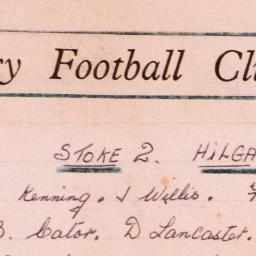 ry Football Cl
STOKE 2. HILGA
Kenning. J Willis.
B. Cator. D Lancaster.